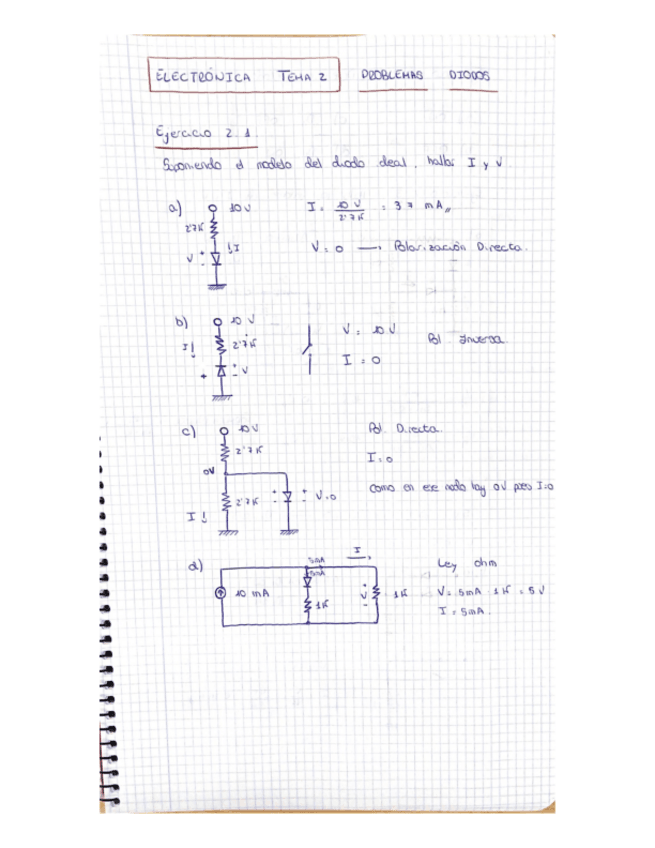 ELECTRÓNICA TEMA 2 PROBLEMAS DIODOS
Ejercicio 2.1.
Suponiendo el modelo del diodo ideal, hallar I y V
a) 10 V
2'7K
I
V + -
I = 10 V / 2'7K = 3'7 mA,,
V = 0 → Polarización Directa.
b) 10 V
I ↓ 2'7K
+ + - V
V = 10 V
I = 0
Pol Inversa.
c) 10V
2'7K
0V
2'7K
I ↓
+ - + - V=0
Pol. Directa.
I = 0
Como en ese nodo hay 0V pues I=0
d) 10 mA
5mA
5mA
I →
1K
+ V -
1K
Ley ohm
V = 5mA · 1K = 5 V
I = 5mA.